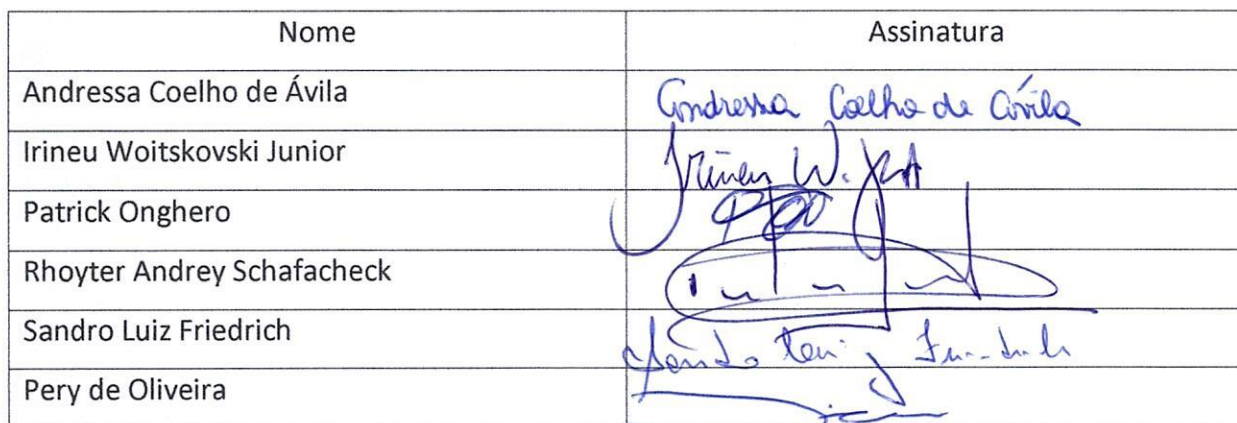 Nome Assinatura
Andressa Coelho de Ávila Andressa Coelho de Ávila
Irineu Woitskovski Junior Irineu W.
Patrick Onghero
Rhoyter Andrey Schafacheck
Sandro Luiz Friedrich Sandro Luiz
Pery de Oliveira